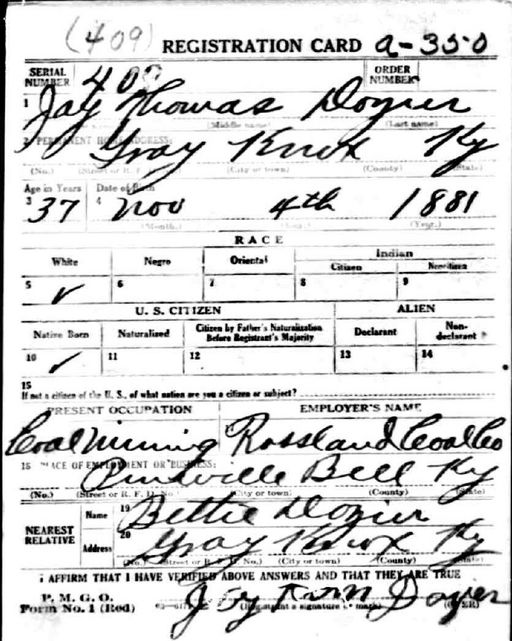 (409)
REGISTRATION CARD a-350
SERIAL NUMBER 409 ORDER NUMBER
1 Jay Thomas Dozier
(Middle name) (Last name)
2 PERMANENT HOME ADDRESS:
Gray Knox Ky
(No.) (Street or R. F. (City or town) (County) (State)
Age in Years Date of Birth
3 37 4 Nov 4th 1881
(Month.) (Day.) (Year.)
RACE
White Negro Oriental Indian
Citizen Noncitizen
5 ✓ 6 7 8 9
U. S. CITIZEN ALIEN
Native Born Naturalized Citizen by Father's Naturalization Before Registrant's Majority Declarant Non-declarant
10 ✓ 11 12 13 14
15
If not a citizen of the U. S., of what nation are you a citizen or subject?
PRESENT OCCUPATION EMPLOYER'S NAME
Coal Mining Rossland Coal Co
18 PLACE OF EMPLOYMENT OR BUSINESS:
Pineville Bell Ky
(No.) (Street or R. F. D. No.) (City or town) (County) (State)
NEAREST RELATIVE Name 19 Bettie Dozier
Address 20 Gray Knox Ky
(No.) (Street or R. F. D. No.) (City or town) (County) (State)
I AFFIRM THAT I HAVE VERIFIED ABOVE ANSWERS AND THAT THEY ARE TRUE
P. M. G. O.
Form No. 1 (Red) Jay Dozier
(Registrant's signature or mark) (OVER)